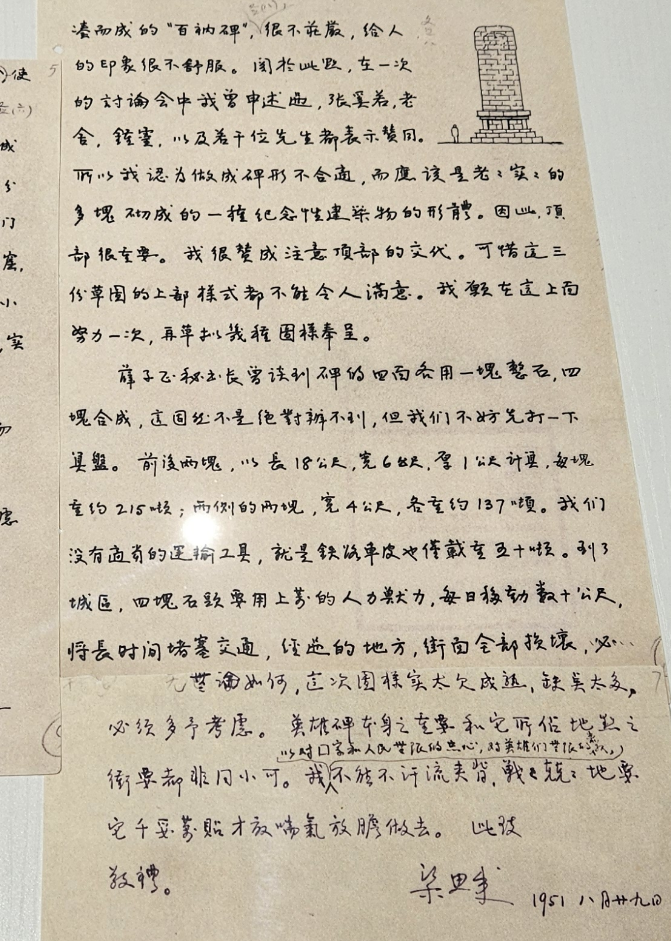 凑而成的“百衲碑”，很不莊嚴，给人
的印象很不舒服。関於此點，在一次
的討論会中我曾申述過，張奚若，老
舍，鍾靈，以及若干位先生都表示赞同。
所以我認为做成碑形不合適，而應该是老老实实的
多塊砌成的一種纪念性建築物的形體。因此，頂
部很重要。我很赞成注意頂部的交代。可惜這三
份草图的上部様式都不能令人满意。我願在這上面
努力一次，再草拟幾種图様奉呈。
薛子正秘书长曾谈到碑的四面各用一塊整石，四
塊合成，這固然不是绝對辦不到，但我们不妨先打一下
算盤。前後两塊，以長18公尺，宽6公尺，厚1公尺计算，每塊
重约215吨；两侧的两塊，宽4公尺，各重约137吨。我们
没有適当的運输工具，就是铁路車皮也僅載重五十吨。到了
城區，四塊石頭要用上萬的人力獸力，每日移動数十公尺，
将長时间堵塞交通，经过的地方，街面全部损壞，必…
无論如何，这次图様实太欠成熟，缺點太多，
必须多予考慮。英雄碑本身之重要和它所佔地點之
以对国家和人民无限的忠心，对英雄们无限的
衝要都非同小可。我不能不汗流夹背，戰戰兢兢地要
它千妥萬贴才放喘氣放膽做去。 此致
敬禮。
梁思成 1951 八月廿九日
使
5
小
实
7